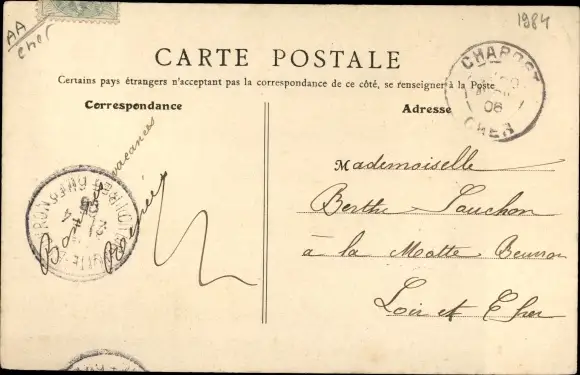 AA
Cher
1984
CARTE POSTALE
Certains pays étrangers n'acceptant pas la correspondance de ce côté, se renseigner à la Poste
Correspondance
Adresse
CHAROST
08
CHER
vacances
Bonnes
Renée
21
4
08
Mademoiselle
Berthe Sauchon
à la Motte Beuvron
Loir et Cher